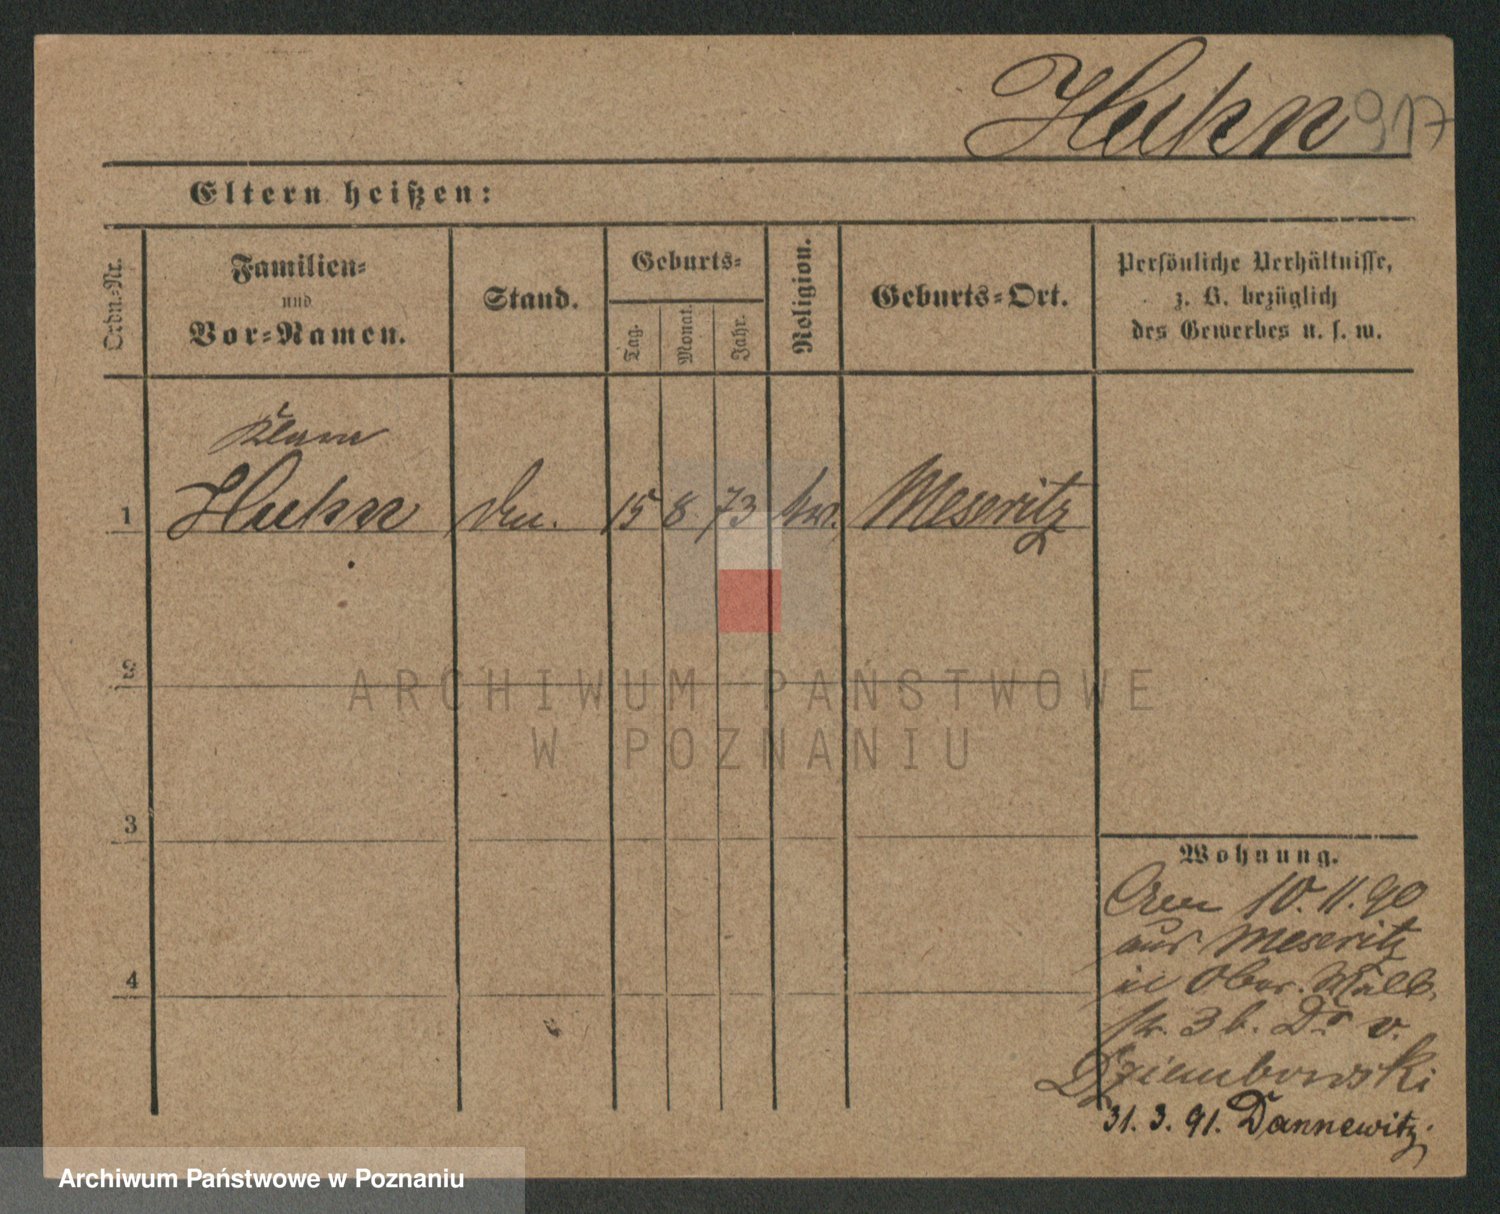 Huhn 917
Eltern heißen:
Ordn.-Nr.
Familien-
und
Vor-Namen.
Stand.
Geburts-
Tag.
Monat.
Jahr.
Religion.
Geburts-Ort.
Persönliche Verhältnisse,
z. B. bezüglich
des Gewerbes u. s. w.
Clara
1 Huhn 15 8 73 Meseritz
2
ARCHIWUM PAŃSTWOWE
W POZNANIU
3
4
Wohnung.
10. 11. 90
aus Meseritz
in Ober.
str. 3 b. Dr v.
Dziembowski
31. 3. 91. Dannewitz
Archiwum Państwowe w Poznaniu